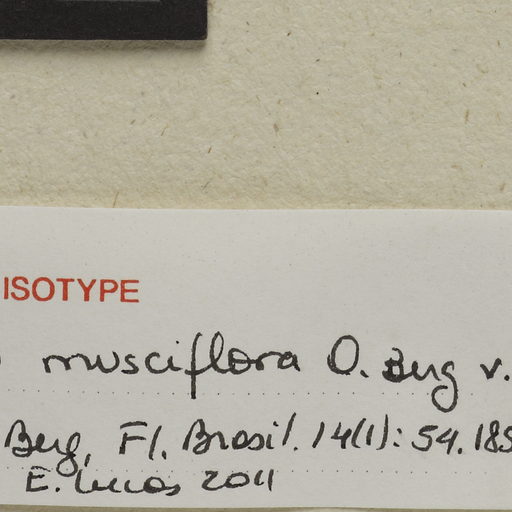 ISOTYPE
musciflora O. Berg v.
Berg, Fl. Brasil. 14(1): 54. 185
E. Lucas 2011